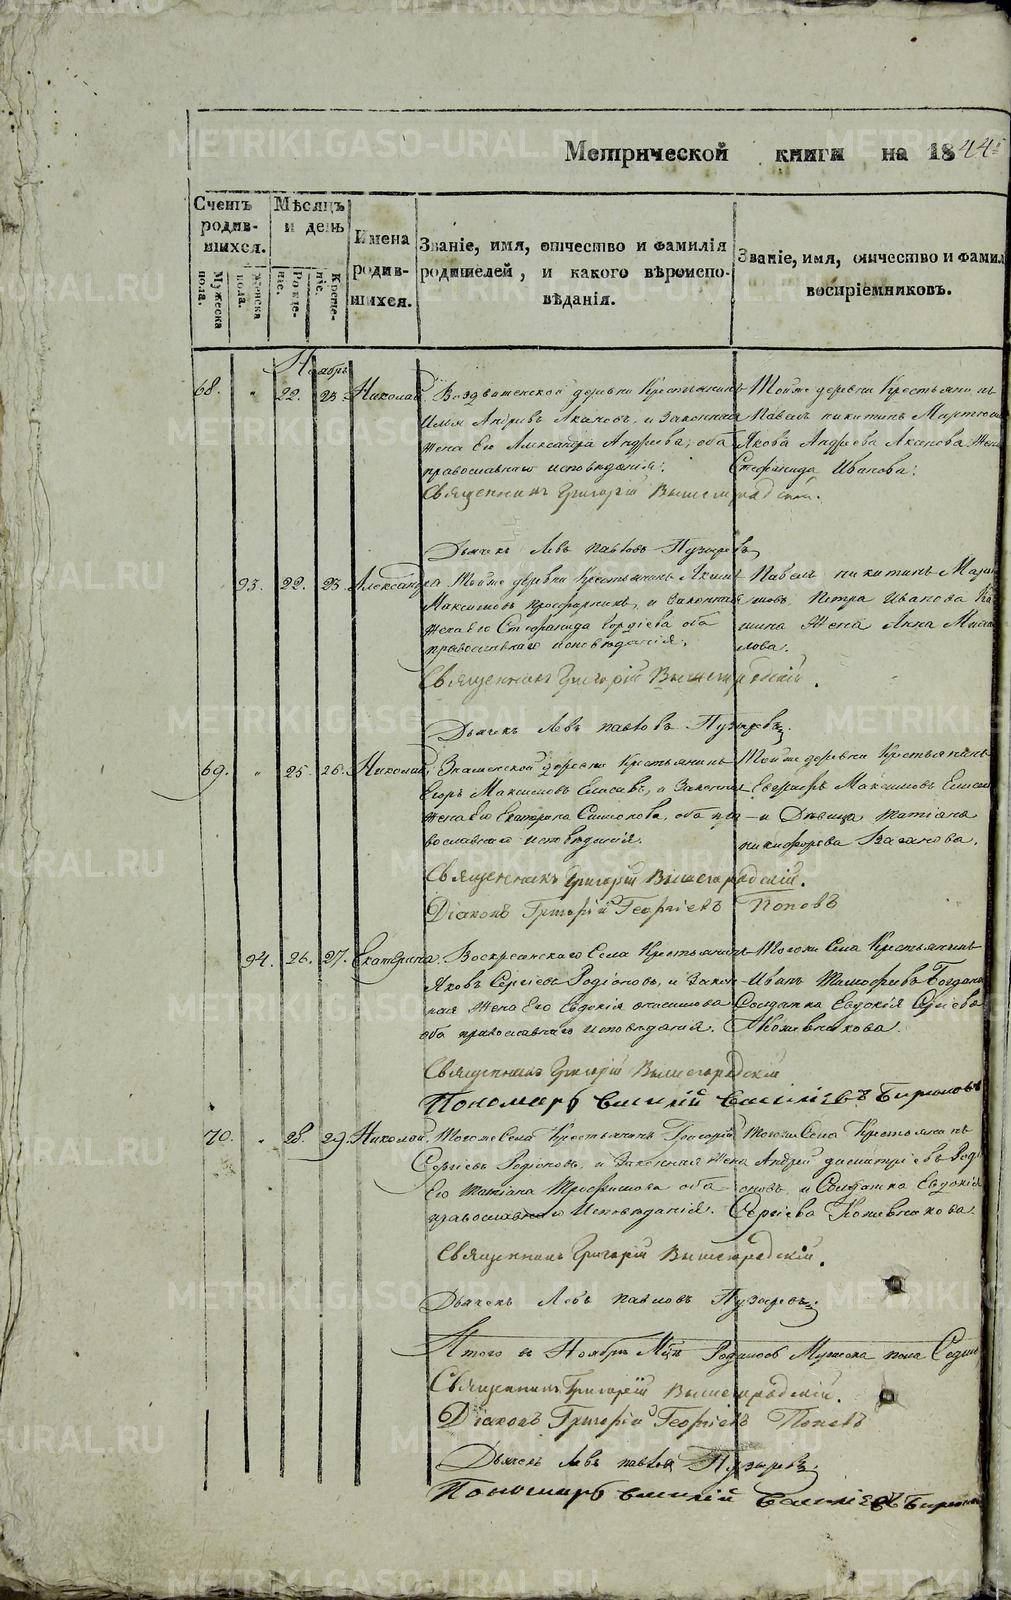 Метрической книги на 1844й
Счетъ родив-шихся.
Мужеска пола.
женска пола.
Мѣсяцъ и день
Рожде-ніе.
Креще-ніе.
Имена родив-шихся.
Званіе, имя, отчество и фамилія
родителей, и какого вѣроиспо-
вѣданія.
Званіе, имя, отчество и фамил
воспріемниковъ.
Ноябрь
68. " 22. 23. Николай.
Воздвиженской деревни Крестьянинъ
Илья Андреевъ Акановъ, и Законная
жена Его Александра Андреева, оба
православнаго исповѣданія.
Тойже деревни Крестьянинъ
Павелъ никитинъ
Якова Андреева Аканова жена
Стефанида Иванова.
Священникъ Григорій Вышегородскій.
Дьячекъ Левъ павловъ Пузыревъ
93. 22. 23. Александра
Тойже деревни Крестьянинъ
Максимовъ и Законная
жена Его Стефанида Гордѣева оба
православнаго исповѣданія.
Павелъ никитинъ
Петра Иванова
жена Анна
Священникъ Григорій Вышегородскій.
Дьячекъ Левъ павловъ Пузыревъ.
69. " 25. 26. Николай.
Знаменской деревни Крестьянинъ
Егоръ Максимовъ Елисѣевъ, и Законная
жена Его Екатерина Симонова, оба пра
вославнаго исповѣданія.
Тойже деревни Крестьянинъ
Максимовъ
и Дѣвица татіана
никифорова Ваганова.
Священникъ Григорій Вышегородскій.
Діаконъ Григорій Георгіевъ Поповъ
94. 26. 27. Екатерина.
Воскресенскаго Села Крестьянинъ
Яковъ Сергіевъ Родіоновъ, и Закон-
ная жена Его Евдокія
оба православнаго исповѣданія.
Тогожи Села Крестьянинъ
Иванъ Тимофеевъ
Солдатка Евдокія Сергіева
Кожевникова.
Священникъ Григорій Вышегородскій
Пономарь Василій Васильевъ Бирюковъ
70. " 28. 29. Николай.
Тогоже Села Крестьянинъ Григорій
Сергіевъ Родіоновъ, и Законная жена
Его Татіана Трофимова оба
православнаго Исповѣданія.
Тогожи Села Крестьянинъ
Андрей димитріевъ Роді
оновъ, и Солдатка Евдокія
Сергіева Кожевникова.
Священникъ Григорій Вышегородскій.
Дьячекъ Левъ павловъ Пузыревъ
Итого въ Ноябрѣ Мцѣ Родилось Мужеска пола
Священникъ Григорій Вышегородскій.
Діаконъ Григорій Георгіевъ Поповъ
Дьячекъ Левъ павловъ Пузыревъ.
Пономарь Василій Васильевъ